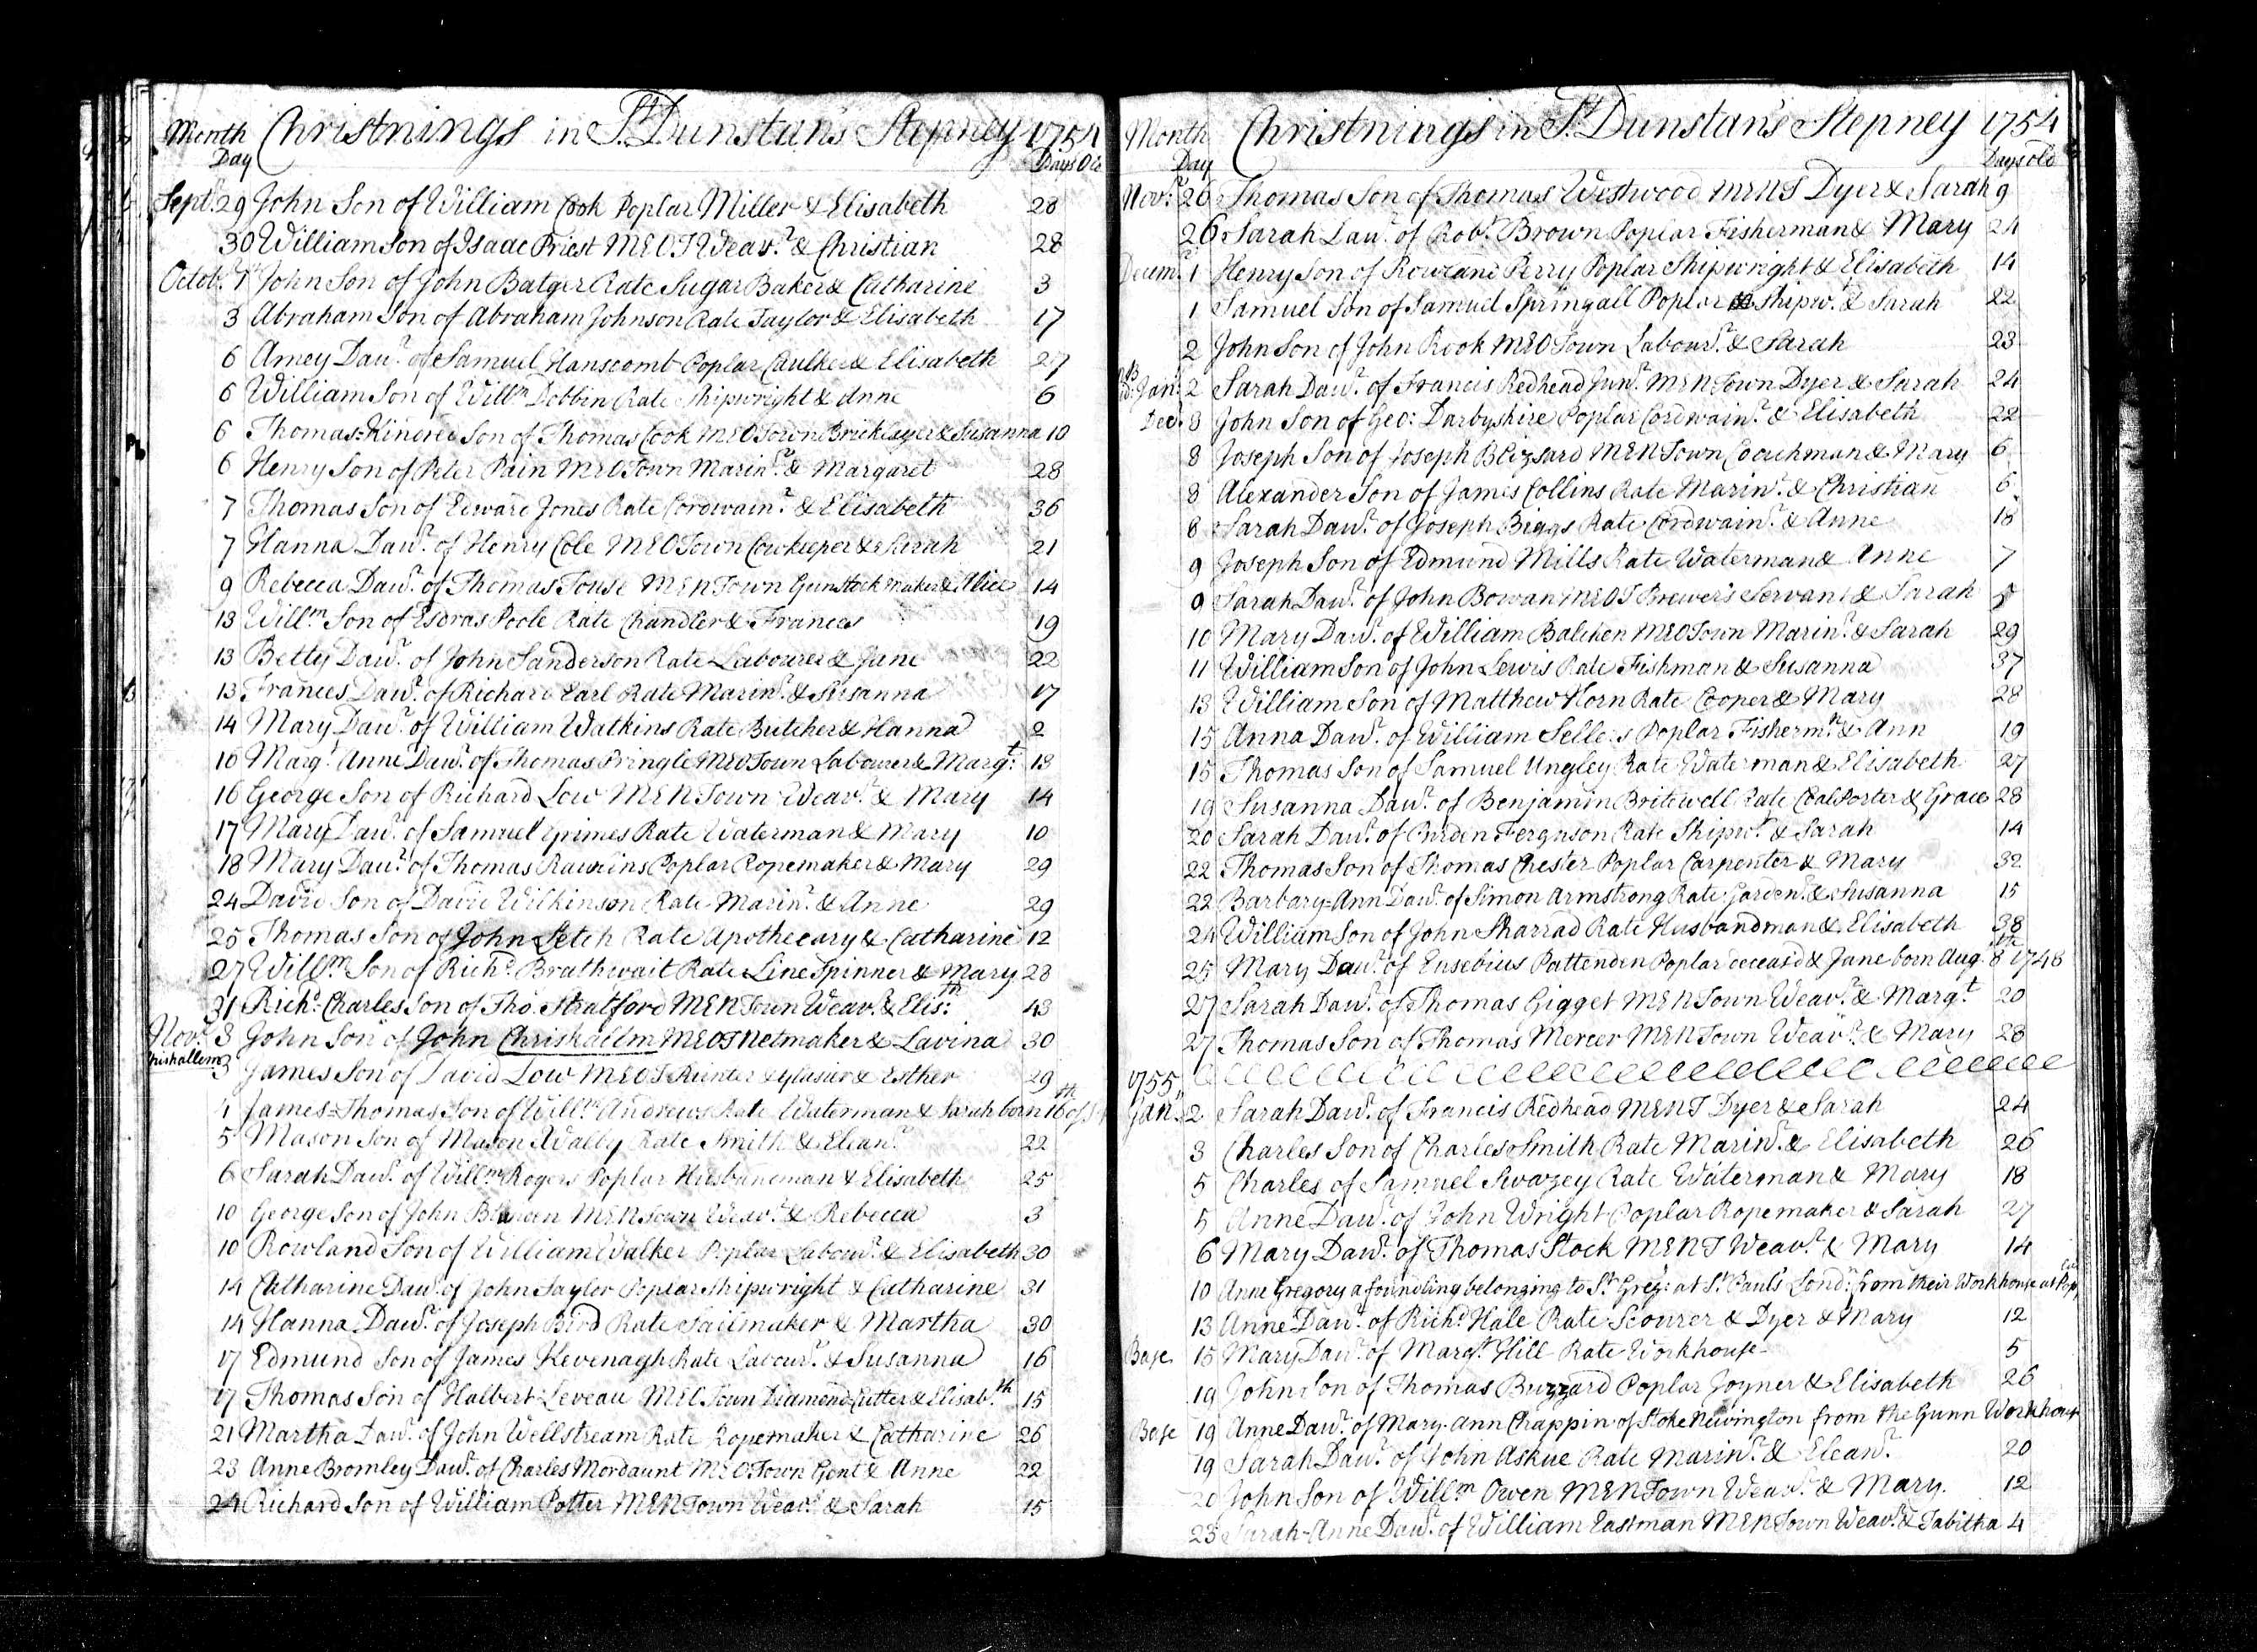 Month Christnings in St. Dunstan's Stepney 1754
Day Days Old
Sept.r 29 John Son of William Cook Poplar Miller & Elisabeth 28
30 William Son of Isaac Priest MEOT Weav.r & Christian 28
Octob.r 1 John Son of John Batger Rate Sugar Baker & Catharine 3
3 Abraham Son of Abraham Johnson Rate Taylor & Elisabeth 17
6 Amey Daw.r of Samuel Hanscomb Poplar Caulker & Elisabeth 27
6 William Son of Will.m Dobbin Rate Shipwright & Anne 6
6 Thomas=Kindred Son of Thomas Cook MEO Town Bricklayer & Susanna 10
6 Henry Son of Peter Pain MEO Town Marin.r & Margaret 28
7 Thomas Son of Edward Jones Rate Cordwain.r & Elisabeth 36
7 Hanna Daw.r of Henry Cole MEO Town Cowkeeper & Sarah 21
9 Rebecca Daw.r of Thomas Touse MEN Town Gunstock Maker & Alice 14
13 Will.m Son of Esdras Poole Rate Chandler & Frances 19
13 Betty Daw.r of John Sanderson Rate Labourer & Jane 22
13 Frances Daw.r of Richard Earl Rate Marin.r & Susanna 17
14 Mary Daw.r of William Watkins Rate Butcher & Hanna 2
16 Marg.t Anne Daw.r of Thomas Pringle MEO Town Labourer & Marg.t 13
16 George Son of Richard Low MEN Town Weav.r & Mary 14
17 Mary Daw.r of Samuel Grimes Rate Waterman & Mary 10
18 Mary Daw.r of Thomas Rawlins Poplar Ropemaker & Mary 29
24 David Son of David Wilkinson Rate Marin.r & Anne 29
25 Thomas Son of John Letch Rate Apothecary & Catharine 12
27 Will.m Son of Rich.d Brathwait Rate Line Spinner & Mary 28
31 Rich.d Charles Son of Tho. Stratford MEN Town Weav.r & Elis.th 43
Nov.r 3 John Son of John Chrishallom MEOT Netmaker & Lavina 30
hishallom
3 James Son of David Low MEOT Painter & Glasier & Esther 29
4 James=Thomas Son of Will.m Andrews Rate Waterman & Sarah born 16th of
5 Mason Son of Mason Wally Rate Smith & Elean.r 22
6 Sarah Daw.r of Will.m Rogers Poplar Husbandman & Elisabeth 25
10 George Son of John MEN Town Weav.r & Rebecca 3
10 Rowland Son of William Walker Poplar Labour.r & Elisabeth 30
14 Catharine Daw.r of John Taylor Poplar Shipwright & Catharine 31
14 Hanna Daw.r of Joseph Bird Rate Sailmaker & Martha 30
17 Edmund Son of James Kevenagh Rate Labour.r & Susanna 16
17 Thomas Son of Halbert Leveau MEO Town Diamond Cutter & Elisab.th 15
21 Martha Daw.r of John Wellstream Rate Ropemaker & Catharine 26
23 Anne Bromley Daw.r of Charles Mordaunt MEO Town Gent & Anne 22
24 Richard Son of William Potter MEN Town Weav.r & Sarah 15
Month Christnings in St. Dunstan's Stepney 1754
Day Days old
Nov.r 26 Thomas Son of Thomas Westwood MENT Dyer & Sarah 9
26 Sarah Daw.r of Rob.t Brown Poplar Fisherman & Mary 24
Decem.r 1 Henry Son of Rowland Perry Poplar Shipwright & Elisabeth 14
1 Samuel Son of Samuel Springall Poplar Shipw.r & Sarah 22
2 John Son of John Rook MEO Town Labour.r & Sarah 23
Jan: 2 Sarah Daw.r of Francis Redhead Jun.r MEN Town Dyer & Sarah 24
Dec.r 8 John Son of Geo: Darbyshire Poplar Cordwain.r & Elisabeth 22
8 Joseph Son of Joseph Blizsard MEN Town Coachman & Mary 6
8 Alexander Son of James Collins Rate Marin.r & Christian 6
8 Sarah Daw.r of Joseph Biggs Rate Cordwain.r & Anne 18
9 Joseph Son of Edmund Mills Rate Waterman & Anne 7
9 Sarah Daw.r of John Bowan MEOT Brewer's Servant & Sarah 5
10 Mary Daw.r of William Balchen MEO Town Marin.r & Sarah 29
11 William Son of John Lewis Rate Fishman & Susanna 37
13 William Son of Matthew Horn Rate Cooper & Mary 28
15 Anna Daw.r of William Sellers Poplar Fisherm.n & Ann 19
15 Thomas Son of Samuel Ungley Rate Waterman & Elisabeth 27
19 Susanna Daw.r of Benjamin Britewell Rate Coal Porter & Grace 28
20 Sarah Daw.r of Burden Ferguson Rate Shipw.t & Sarah 14
22 Thomas Son of Thomas Chester Poplar Carpenter & Mary 32
22 Barbary=Ann Daw.r of Simon Armstrong Rate Garden.r & Susanna 15
24 William Son of John Sharrad Rate Husbandman & Elisabeth 38
25 Mary Daw.r of Eusebius Pattenden Poplar deceas'd & Jane born Aug. 8th 1748
27 Sarah Daw.r of Thomas Gigget MEN Town Weav.r & Marg.t 20
27 Thomas Son of Thomas Mercer MEN Town Weav.r & Mary 28
1755
Jan.y 2 Sarah Daw.r of Francis Redhead MENT Dyer & Sarah 24
3 Charles Son of Charles Smith Rate Marin.r & Elisabeth 26
5 Charles of Samuel Swazey Rate Waterman & Mary 18
5 Anne Daw.r of John Wright Poplar Ropemaker & Sarah 27
6 Mary Daw.r of Thomas Stock MENT Weav.r & Mary 14
10 Anne Gregory a foundling belonging to St. Greg: at St. Paul's Lond.n from their Workhouse at Pop
13 Anne Daw.r of Rich.d Hale Rate Scourer & Dyer & Mary 12
Base 15 Mary Daw.r of Marg.t Hill Rate Workhouse 5
19 John Son of Thomas Buzzard Poplar Joyner & Elisabeth 26
Base 19 Anne Daw.r of Mary-Ann Chappin of Stoke Newington from the Gunn Workhouse
19 Sarah Daw.r of John Askue Rate Marin.r & Elean.r 20
20 John Son of Will.m Owen MEN Town Weav.r & Mary 12
23 Sarah-Anne Daw.r of William Eastman MEN Town Weav.r & Tabitha 4